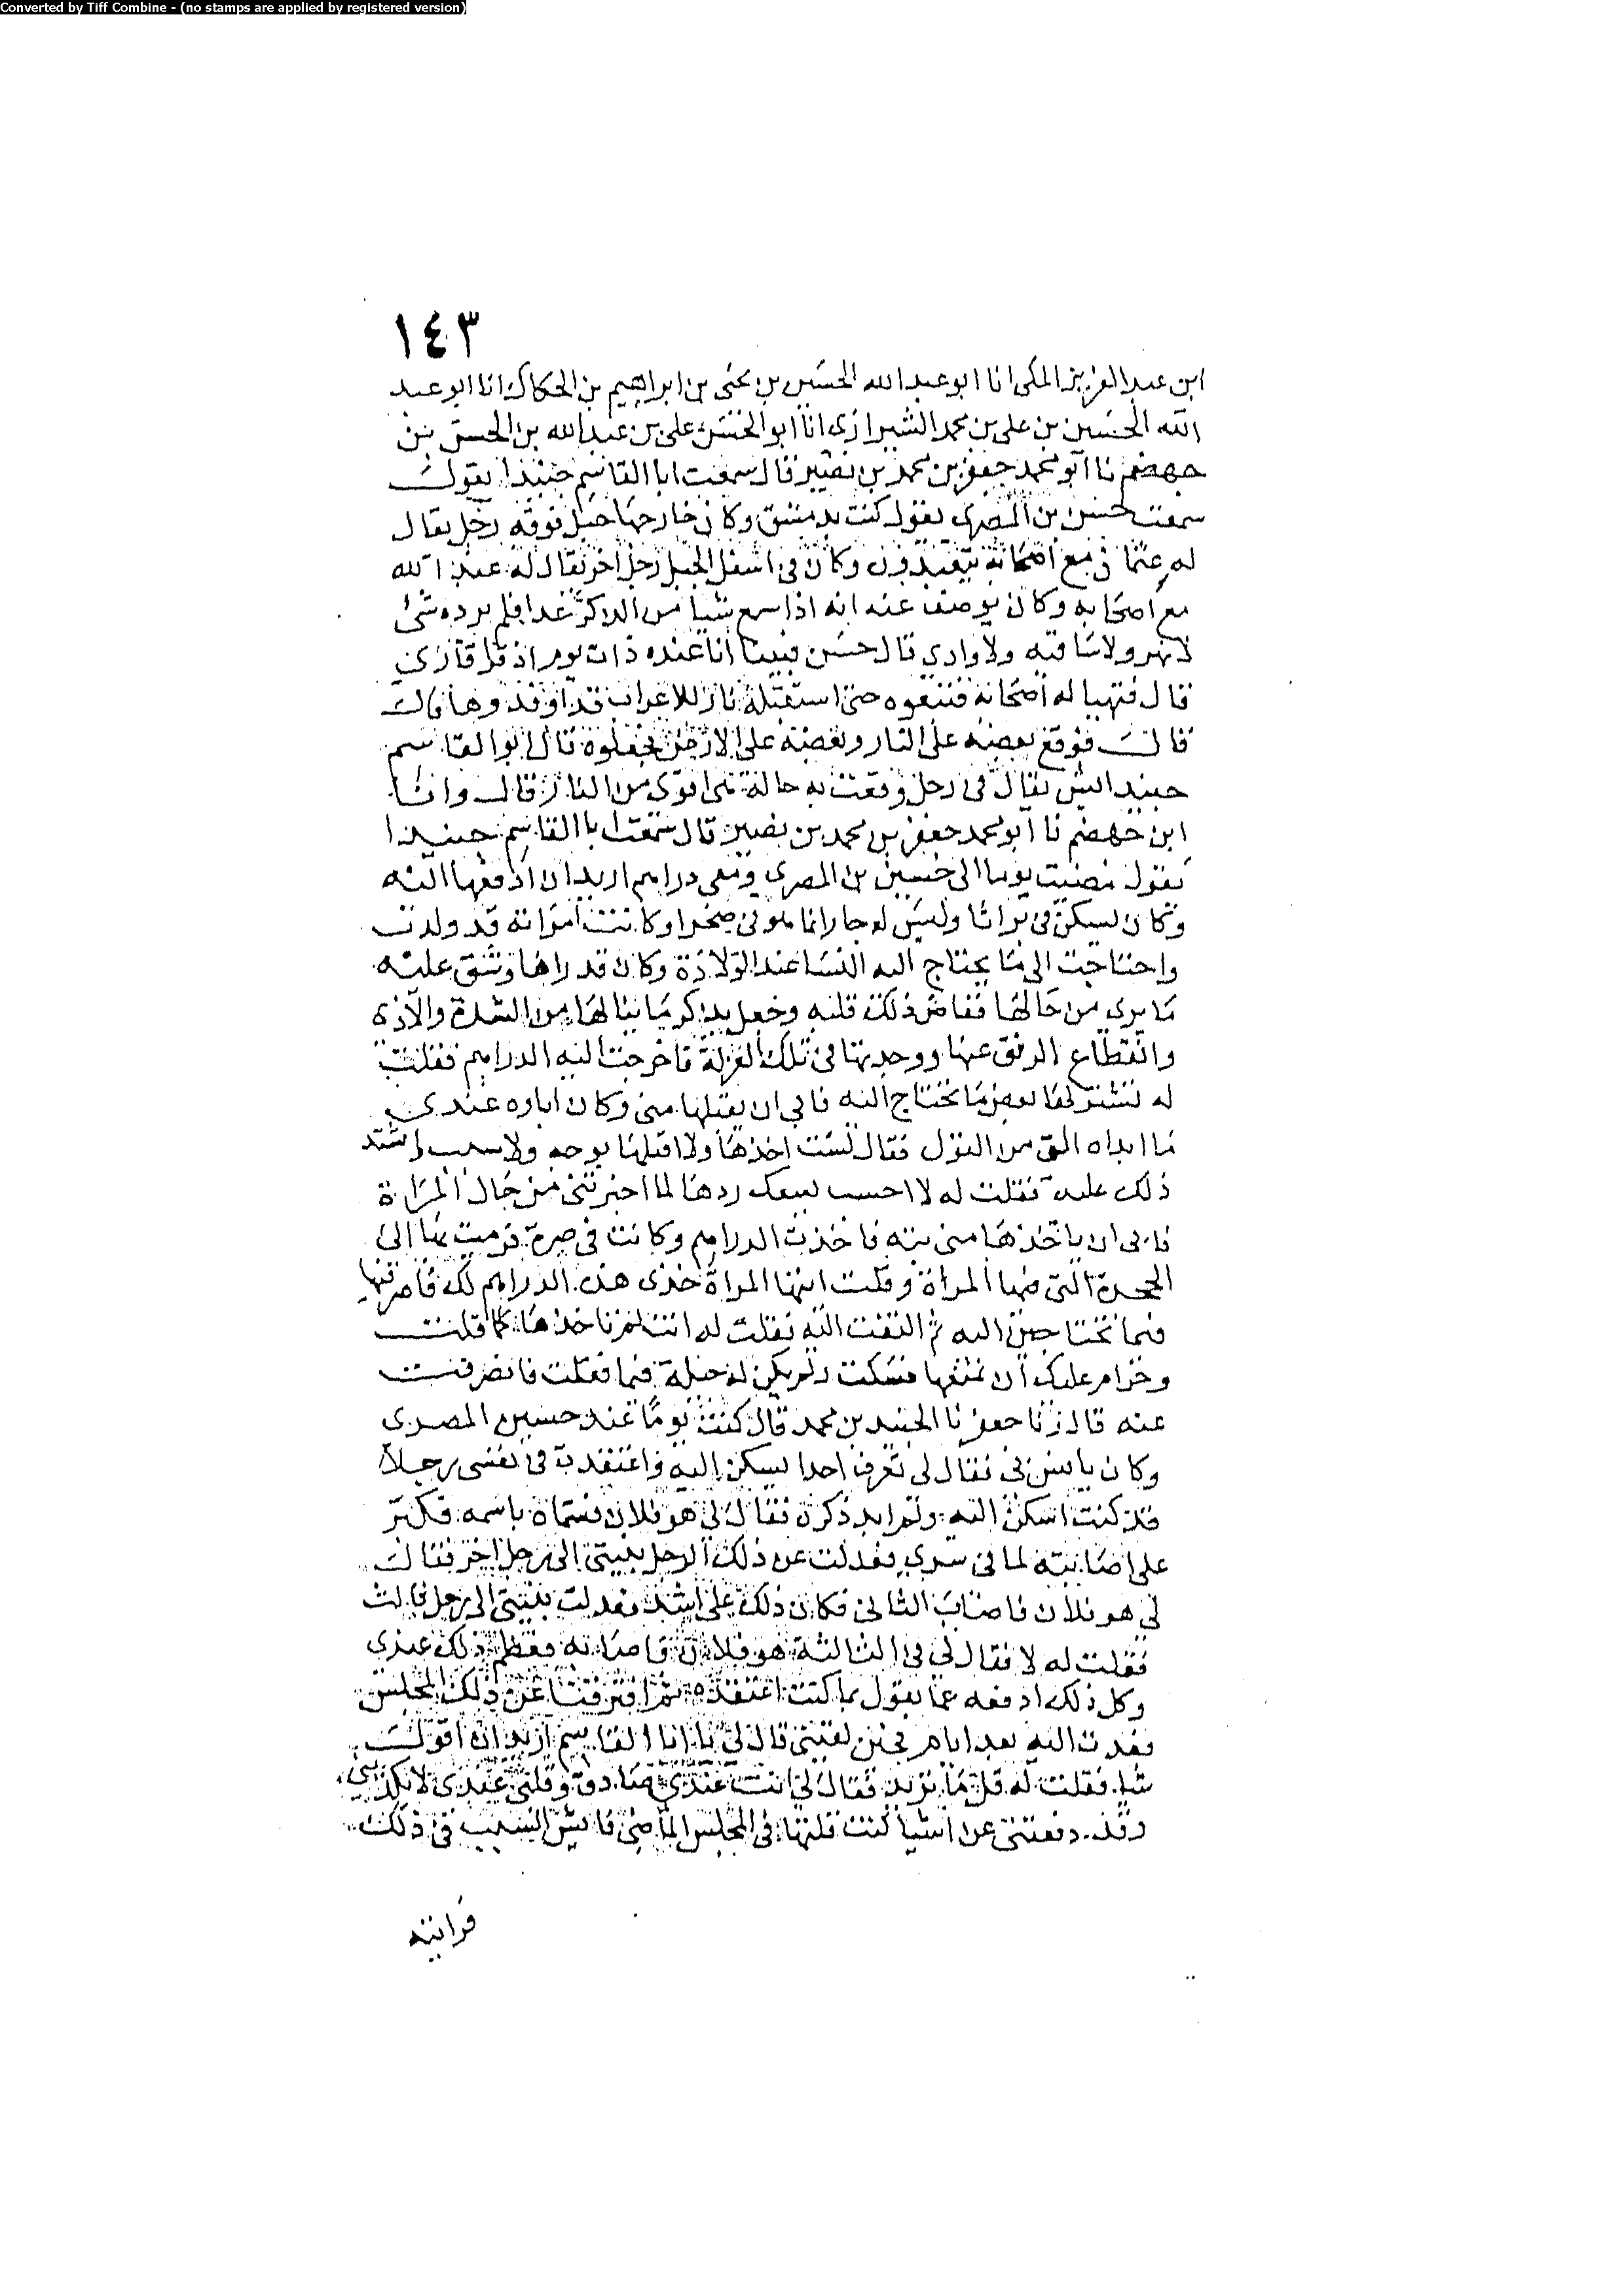 Converted by Tiff Combine - (no stamps are applied by registered version)
١٤٣
ابن عبد العزيز المكى انا ابو عبد الله الحسين بن يحيى بن ابراهيم بن الحكاك انا ابو عبد
الله الحسين بن على بن محمد الشيرازى انا ابو الحسن على بن عبد الله بن الحسن بن
جهضم نا ابو محمد جعفر بن محمد بن نصير قال سمعت ابا القاسم جنيدا يقول
سمعت حسن بن المصرى يقول كنت بدمشق وكان خارجها جبل فوقه رجل يقال
له عثمان مع اصحابه يتعبدون وكان فى اسفل الجبل رجل اخر يقال له عبد الله
مع اصحابه وكان يوصف عنه انه اذا سمع شيا من الذكر عدا فلم يرده شئ
لا نهر ولا ساقيه ولا وادى قال حسن فبينا انا عنده ذات يوم اذ قرا قارى
قال فتهيا له اصحابه فتبعوه حتى استقبله نار للاعراب قد اوقدوها قال
قال فوقع بعضه على النار وبعضه على الارض فحملوه قال ابو القاسم
جنيد ايش يقال فى رجل وقعت به حالة هى اقوى من النار قال وانا
ابن جهضم نا ابو محمد جعفر بن محمد بن نصير قال سمعت ابا القاسم جنيدا
يقول مضيت يوما الى حسين بن المصرى ومعى دراهم اريد ان ادفعها اليه
وكان يسكن فى براثا وليس له جار انما هو فى صحرا وكانت امراته قد ولدت
واحتاجت الى ما يحتاج اليه النسا عند الولادة وكان قد راها وشق عليه
ما يرى من حالها فغاض ذلك قلبه وجعل يذكر ما ينالها من الشدة والاذى
وانقطاع الرفق عنها ووحدتها فى تلك العزلة فاخرجت اليه الدراهم فقلت
له تشتر لها بعض ما تحتاج اليه فابى ان يقبلها منى وكان اباوه عندى
ما ابداه الى من القول فقال لست اخذها ولا اقبلها بوجه ولا سبب اشتد
ذلك عليه فقلت له لا احسب يسعك ردها لما اخبرتنى من حال المراة
فابى ان ياخذها منى بته فاخذت الدراهم وكانت فى صرة فرميت بها الى
الحجرة التى فيها المراة وقلت ايتها المراة خذى هذه الدراهم لك فاصرفيها
فيما تحتاجين اليه ثم التفت اليه فقلت له انت لم تاخذها كما قلت
وحرام عليك ان تمنعها فسكت ولم يكن له حيلة فيما فعلت فانصرفت
عنه قال ونا جعفر نا الجنيد بن محمد قال كنت يوما عند حسين المصرى
وكان يانس بى فقال لى تعرف احدا يسكن اليه فاعتقدت فى نفسى رجلا
قد كنت اسكن اليه ولم ابد ذكره فقال لى هو فلان فسماه باسمه فكبر
على اصابته لما فى سرى فعدلت عن ذلك الرجل بنيتى الى رجل اخر فقال
لى هو فلان فاصاب الثانى فكان ذلك على اشد فعدلت بنيتى الى رجل ثالث
فقلت له لا فقال لى فى الثالثة هو فلان فاصابه فعظم ذلك عندى
وكل ذلك ادفعه عما يقول بما كنت اعتقده ثم افترقنا عن ذلك المجلس
فعدت اليه بعد ايام فحين لقيتنى قال لى يا ابا القاسم اريد ان اقول
شيا فقلت له قل ما تريد فقال لى انت عندى صادق وقلبى عندى لا يكذبنى
وقد دفعتنى عن اشيا كنت قلتها فى المجلس الماضى فايش السبب فى ذلك
فرايته